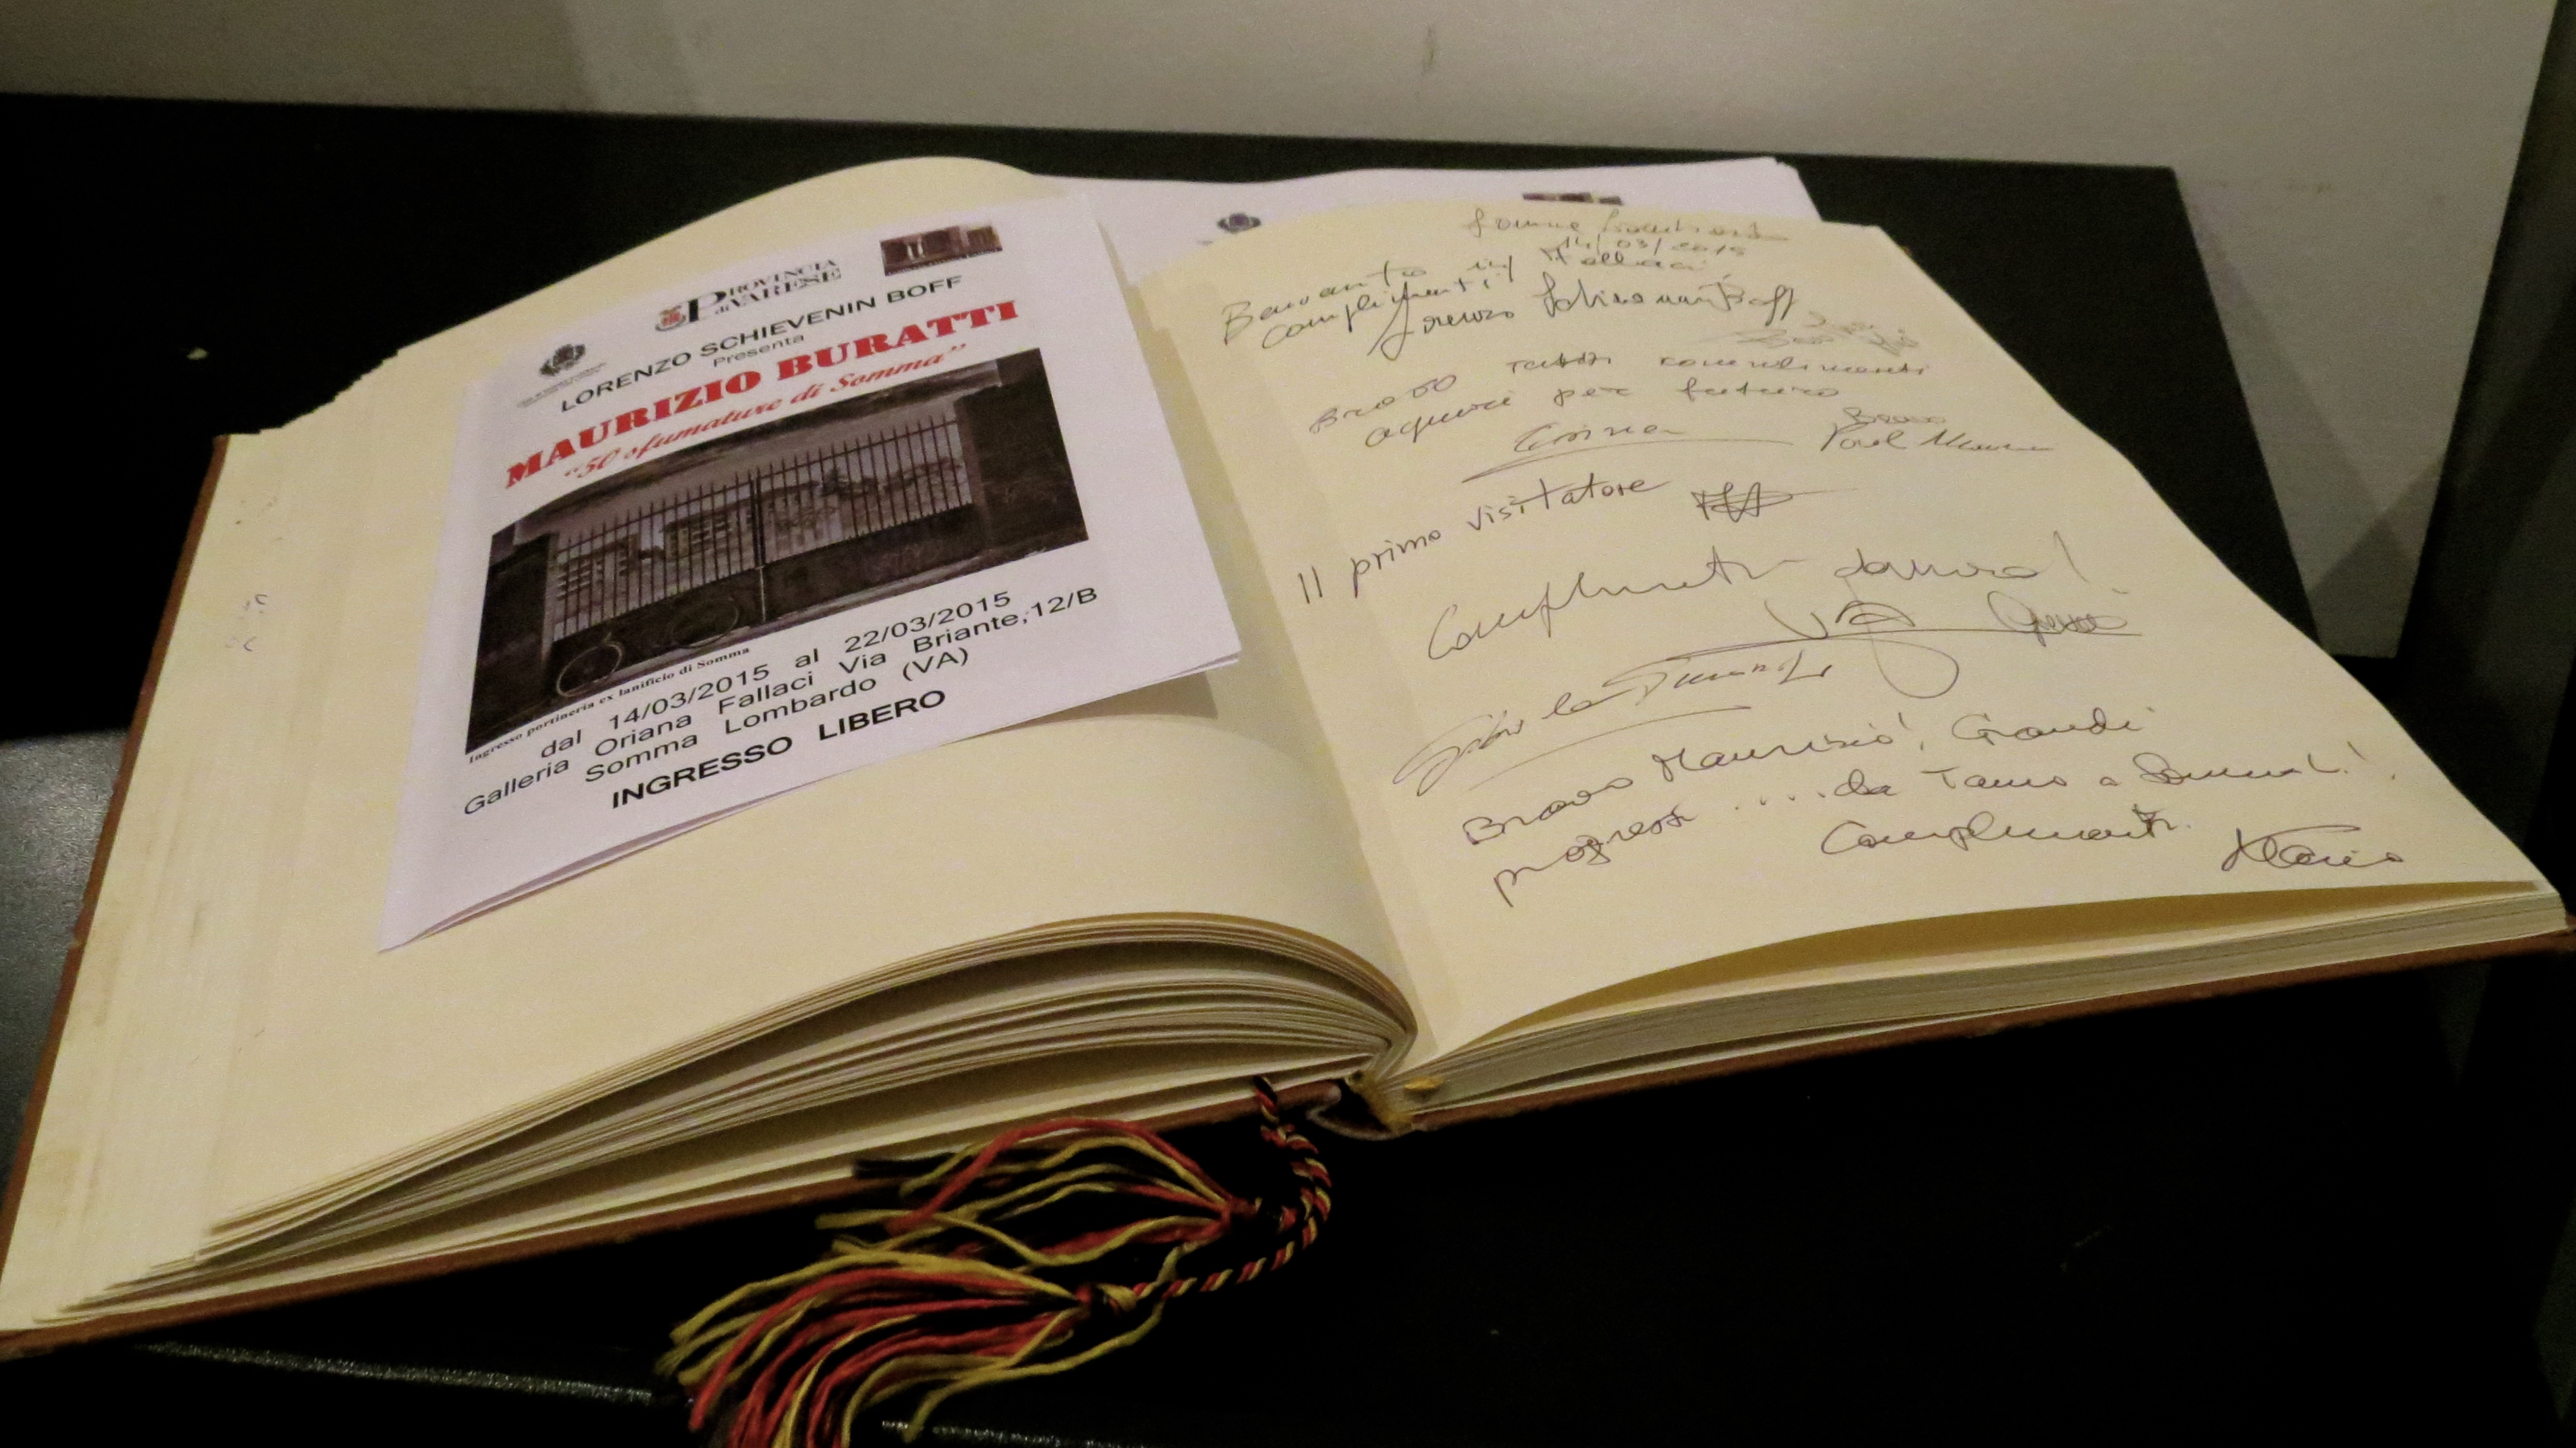 PROVINCIA
di VARESE
LORENZO SCHIEVENIN BOFF
Presenta
MAURIZIO BURATTI
“50 sfumature di Somma”
Ingresso portineria ex lanificio di Somma
dal 14/03/2015 al 22/03/2015
Galleria Oriana Fallaci Via Briante,12/B
Somma Lombardo (VA)
INGRESSO LIBERO
Somma Lombardo
14/03/2015
complimenti
Lorenzo Schievenin Boff
Bravo tanti complimenti
auguri per futuro
Bravo
Il primo visitatore
Complimenti davvero!
Bravo Maurizio! Grandi
progressi .... da Taino a Somma L.!
Complimenti.